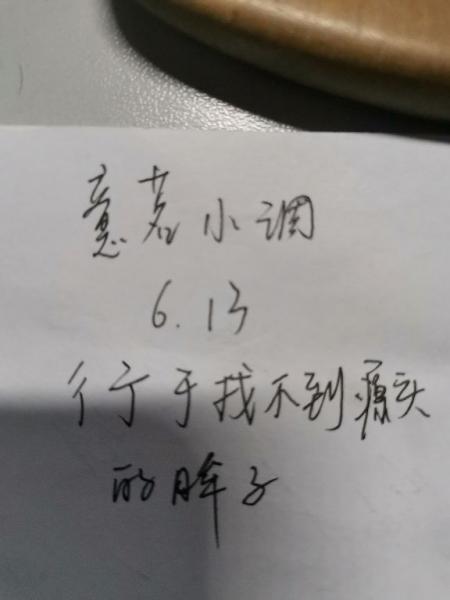 意茗小调
6.13
行于找不到源头
的眸子